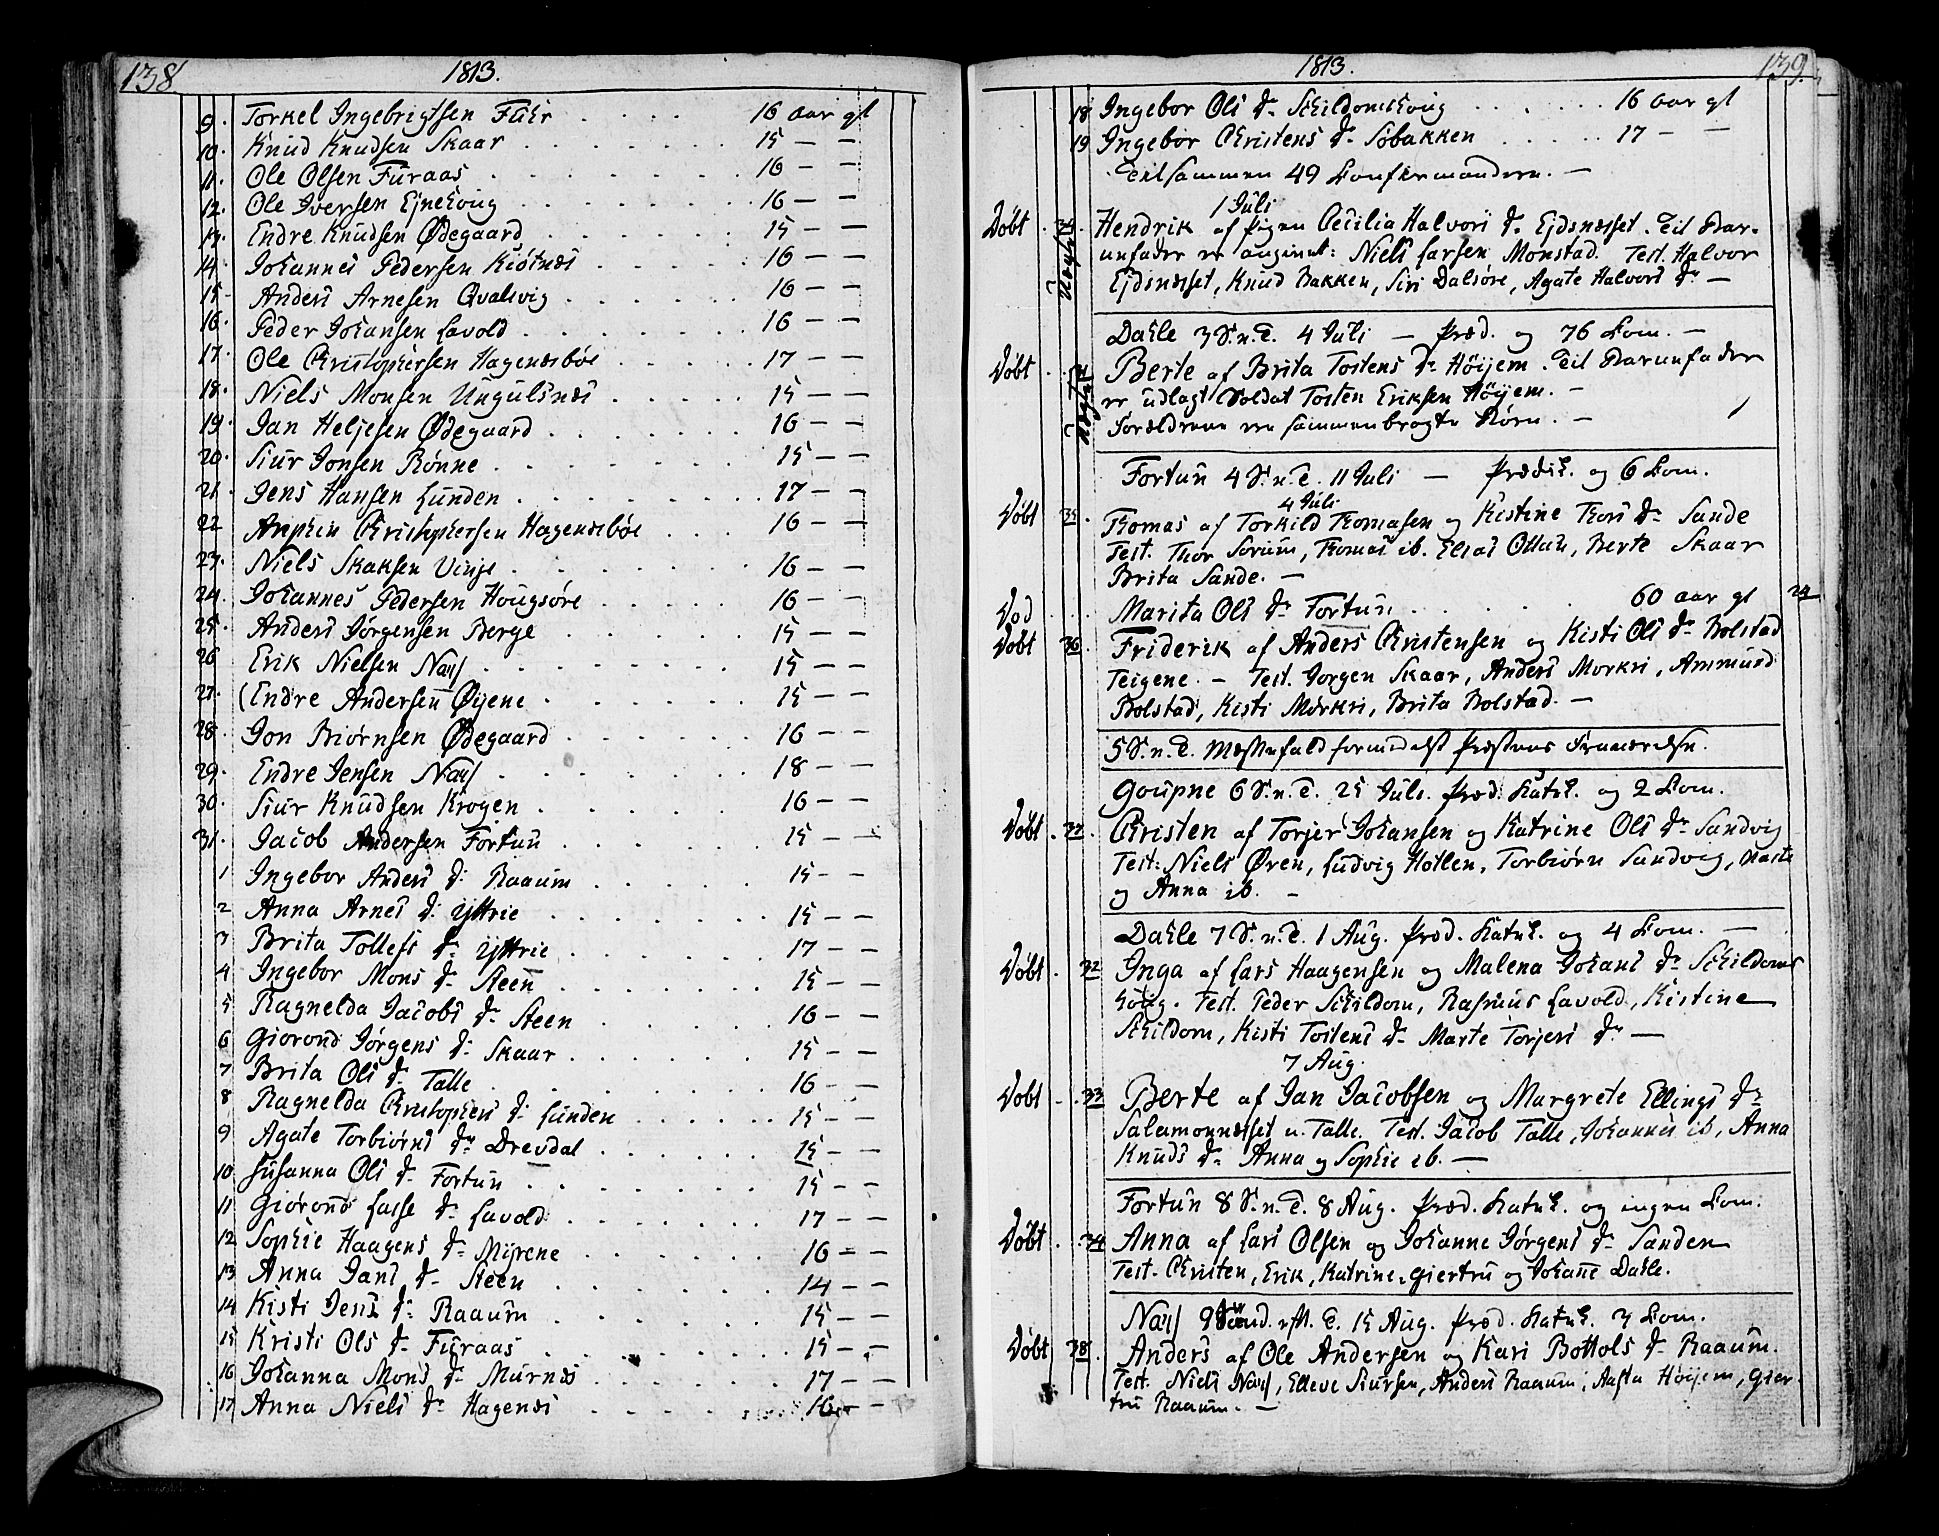 138 1813.
9. Torkel Ingebrigtsen Fuhr . . . . 16 aar gl
10. Knud Knudsen Skaar . . . . 15 — —
11. Ole Olsen Furaas . . . . 16 — —
12. Ole Iversen Ejnehoug . . . . 16 — —
13. Endre Knudsen Ødegaard . . . . 15 — —
14. Johannes Pedersen Kiötnæs . . . . 16 — —
15. Anders Arnesen Qvalsvig . . . . 16 — —
16. Peder Johansen Lavold . . . . 16 — —
17. Ole Christophersen Hagenæsböe . . . . 17 — —
18. Niels Monsen Ungulsnæs . . . . 15 — —
19. Jan Heljesen Ødegaard . . . . 16 — —
20. Siur Jonsen Rönne . . . . 15 — —
21. Jens Hansen Lunden . . . . 17 — —
22 Anphin Christophersen Hagenæsböe . . . 16 — —
23. Niels Skaksen Vinje . . . . 16 — —
24. Johannes Pedersen Hougsöre . . . . 16 — —
25. Anders Jørgensen Berge . . . . 15 — —
26 Erik Nielsen Næs . . . . 15 — —
27. (Endre Andersen Øyene . . . . 15 — —
28. Jon Biørnsen Ødegaard . . . . 16 — —
29. Endre Jensen Næs . . . . 18 — —
30. Siur Knudsen Krogen . . . . 16 — —
31. Jacob Andersen Fortun . . . . 15 — —
1 Ingebor Anders d. Raaum . . . . 15 — —
2 Anna Arnes d. Yttrie . . . . 15 — —
3 Brita Tollefs dr Yttrie . . . . 17 — —
4 Ingebor Mons dr Steen . . . . 15 — —
5 Ragnelda Jacobs dr Steen . . . . 16 — —
6 Giørond Jørgens d. Skaar . . . . 15 — —
7 Brita Ols dr Talle . . . . 16 — —
8 Ragnelda Christophers d. Lunden . . . . 15 — —
9 Agate Torbiørns dr Drevdal . . . . 15 — —
10 Susanna Ols dr Fortun . . . . 15 — —
11 Giørond Lasse dr Lavold . . . . 17 — —
12 Sophie Haagens dr Myrene . . . . 16 — —
13 Anna Jans dr Steen . . . . 14 — —
14 Kisti Jens dr Raaum . . . . 15 — —
15 Kristi Ols dr Furaas . . . . 15 — —
16 Johanna Mons dr Murnæs . . . . 17 — —
17 Anna Niels dr Hagenæs . . . . 16 — —
1813. 139.
18 Ingebor Ols dr Skildomshoug . . . . 16 aar gl
19 Ingebor Christens dr Søbakken . . . . 17 — —
Tilsammen 49 Konfirmandere. —
1 Juli
Døbt . Uægte . Hendrik af Pigen Cecilia Halvors dr Ejdsnæsset. Til Bar-
nefader er anginet: Niels Larsen Monstad. Test. Halvor
Ejdsnæsset, Knud Bakken, Siri Dalsöre, Agate Halvors dr —
Dahle 3 S. n. T. 4 Juli — Præd. og 76 Kom. —
Døbt . . uægte Berte af Brita Tostens dr Höyjem. Til Barnefader
er udlagt Soldat Tosten Eriksen Höyjem. —
Forældrene ere sammenbragte Börn. —
Fortun 4 S. n. T. 11 Juli — Prædik. og 6 Kom.
4 Juli
Døbt 35. Thomas af Torkild Thomasen og Kistine Thors dr Sande
Test. Thor Sorum, Thomas ib. Elias Ottun, Berte Skaar
Brita Sande. —
Död . . . Marita Ols dr Fortun . . . . 60 aar gl 24
Døbt 36. Friderik af Anders Christensen og Kisti Ols dr Bolstad
Teigene. — Test. Jorgen Skaar, Anders Morkri, Ammund
Bolstad, Kisti Mørkri, Brita Bolstad. —
5 S. n. T. Messefald formedelst Præstens Fraværelse.
Goupne 6 S. n. T. 25 Juli. Præd. Katek. og 2 Kom.
Døbt . 37. Christen af Torjer Johansen og Katrine Ols dr Sandvig
Test: Niels Øren, Ludvig Hotlen, Torbiørn Sandvig, Marte
og Anna ib. —
Dahle 7 S. n. T. 1 Aug. Præd. Katek. og 4 Kom. —
Døbt . 32 Inga af Lars Haagensen og Malena Johans dr Skildoms
houg. Test. Peder Skildom, Rasmus Lavold, Kistine
Skildom, Kisti Tostens dr Marte Torjers dr —
7 Aug.
Døbt . . 33 Berte af Jan Jacobsen og Margrete Ellings dr
Salamonnæsset u. Talle. Test. Jacob Talle, Johannes ib, Anna
Knuds dr Anna og Sophie ib. —
Fortun 8 S. n. T. 8 Aug. Præd. Katek. og ingen Kom.
Døbt . 34 Anna af Lars Olsen og Johanne Jørgens dr Sanden
Test. Christen, Erik, Katrine, Giertru og Johane Dahle.
Næs 9 Sönd. eft. T. 15 Aug. Præd. Katek. 3 Kom.
Døbt 38. Anders af Ole Andersen og Kari Bottols dr Raaum.
Test. Niels Næs, Elleve Siursen, Anders Raaum, Aasta Höyjem, Gier-
tru Raaum. —